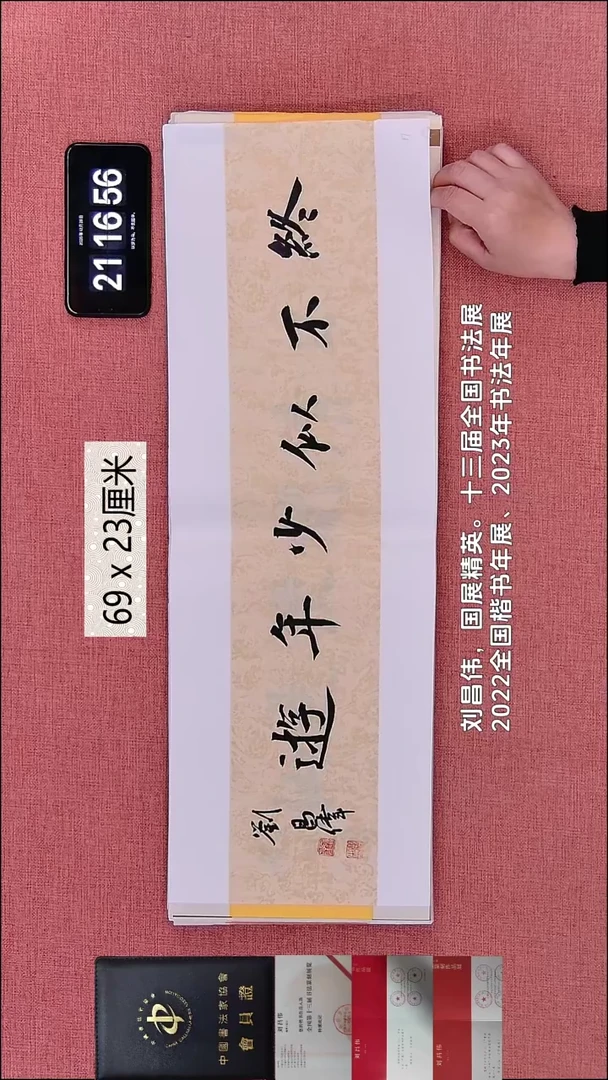 21 16 56
69 x 23厘米
終不似少年遊
劉昌偉
刘昌伟，国展精英。十三届全国书法展
2022全国楷书年展、2023年书法年展
中國書法家協會
會員證